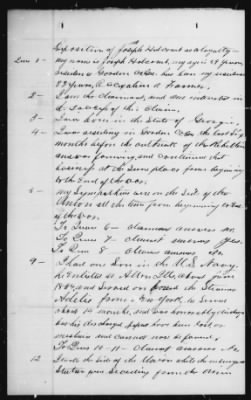 Deposition of Joseph Holcomb as to loyalty —
Ques 1 — my name is Joseph Holcomb, my age is 58 years,
residence Gordon Has been my residence
years, & occupation a Farmer.
2 — I am the claimant, and am interested in
the success of this claim.
3 — I was born in the State of Georgia.
4 — I was residing in Gordon the last six
months before the outbreak of the Rebellion
and continued this
at the same place from beginning
to the End of the War.
5 — my Sympathies were on the side of the
Union all the time from beginning to End
of the War.
To Ques 6 — claimant answers no.
To Ques 7 — claimant answers Yes.
To Ques 8 — claimant answers no.
9 — I had one Son in the U.S. Navy.
He enlisted at Alton Ills, about June
1864 and served on board the Steamer
from New York, he served
about 14 months, and was honorably discharged
but his discharge papers have been lost or
and cannot now be found.
To Ques 10 — 11 — Claimant answers No
12 the side of the Union while the
States were Seceding from the Union